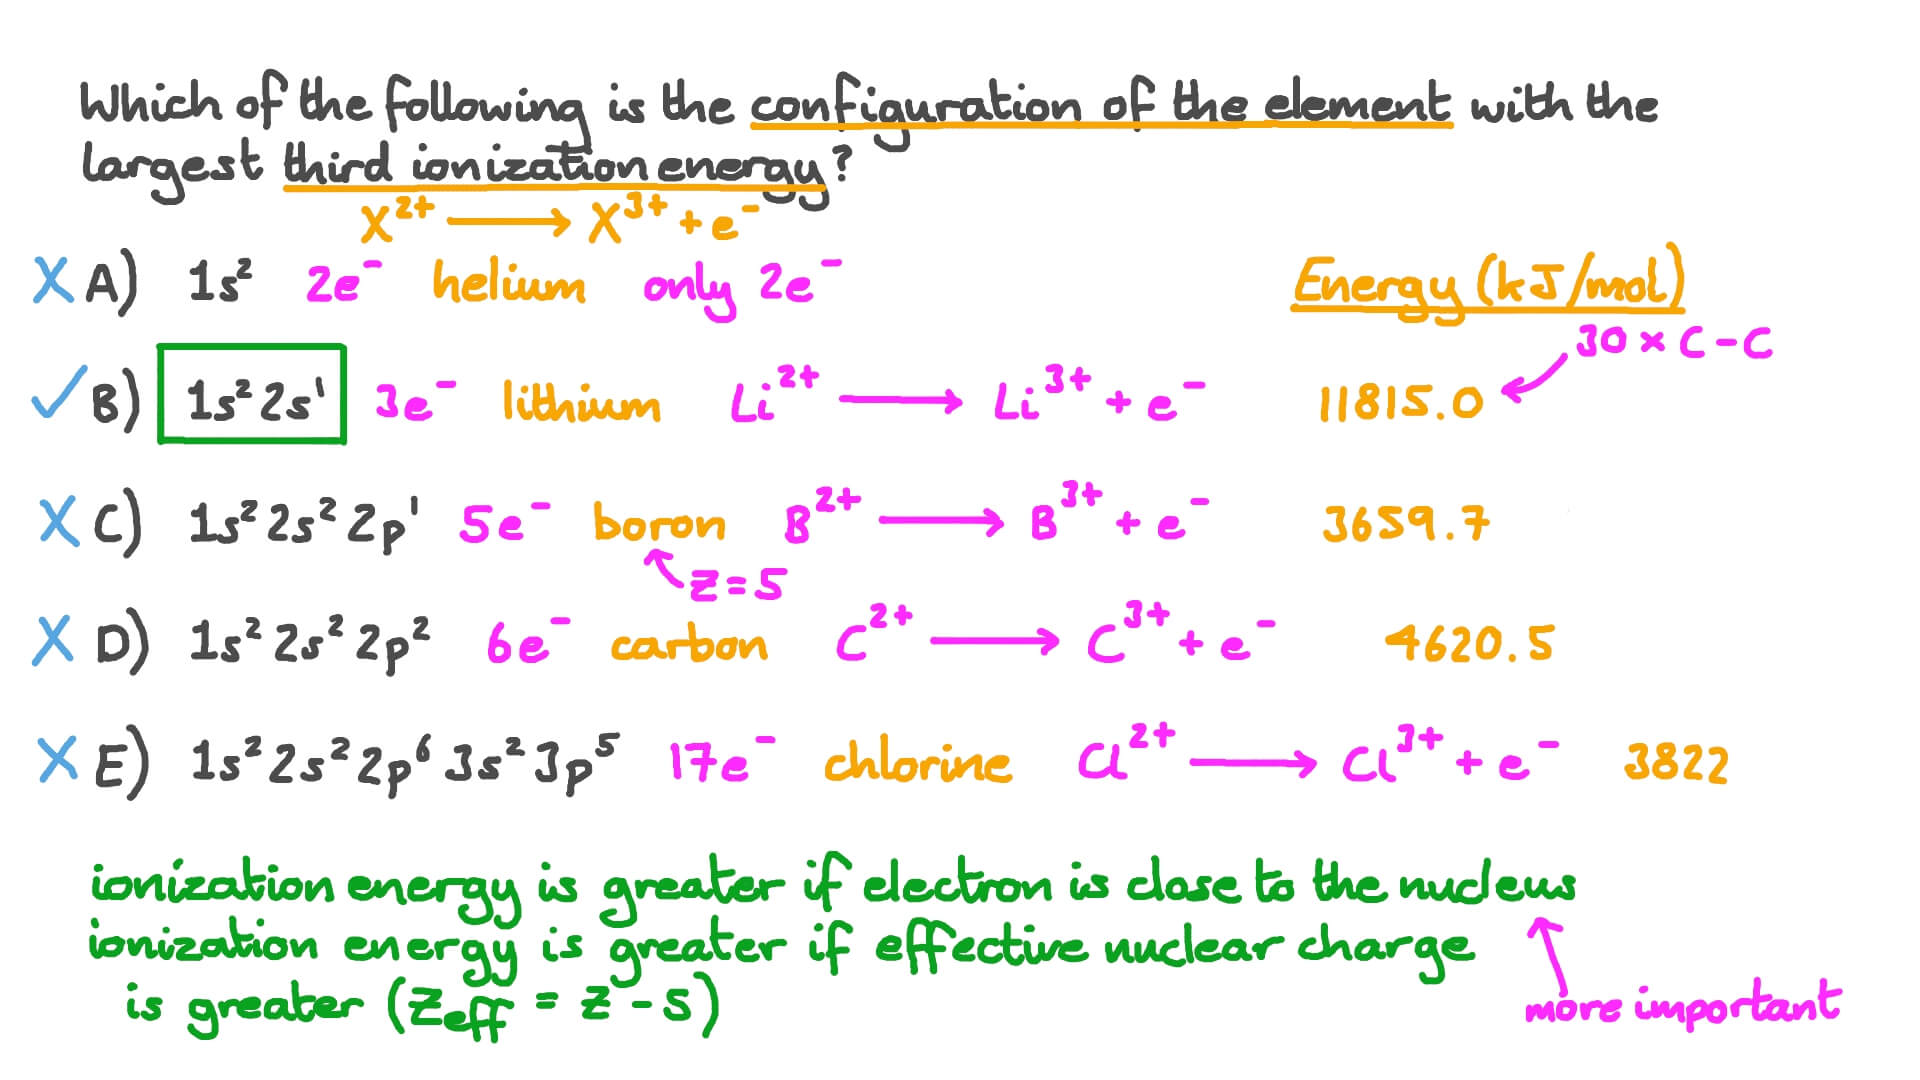 Which of the following is the configuration of the element with the
largest third ionization energy?
X²⁺ ⟶ X³⁺ + e⁻
X A) 1s² 2e⁻ helium only 2e⁻ Energy (kJ/mol)
30 × C-C
✓ B) 1s² 2s¹ 3e⁻ lithium Li²⁺ ⟶ Li³⁺ + e⁻ 11815.0
X C) 1s² 2s² 2p¹ 5e⁻ boron B²⁺ ⟶ B³⁺ + e⁻ 3659.7
Z = 5
X D) 1s² 2s² 2p² 6e⁻ carbon C²⁺ ⟶ C³⁺ + e⁻ 4620.5
X E) 1s² 2s² 2p⁶ 3s² 3p⁵ 17e⁻ chlorine Cl²⁺ ⟶ Cl³⁺ + e⁻ 3822
ionization energy is greater if electron is close to the nucleus
ionization energy is greater if effective nuclear charge
is greater (Zeff = Z - S)
more important